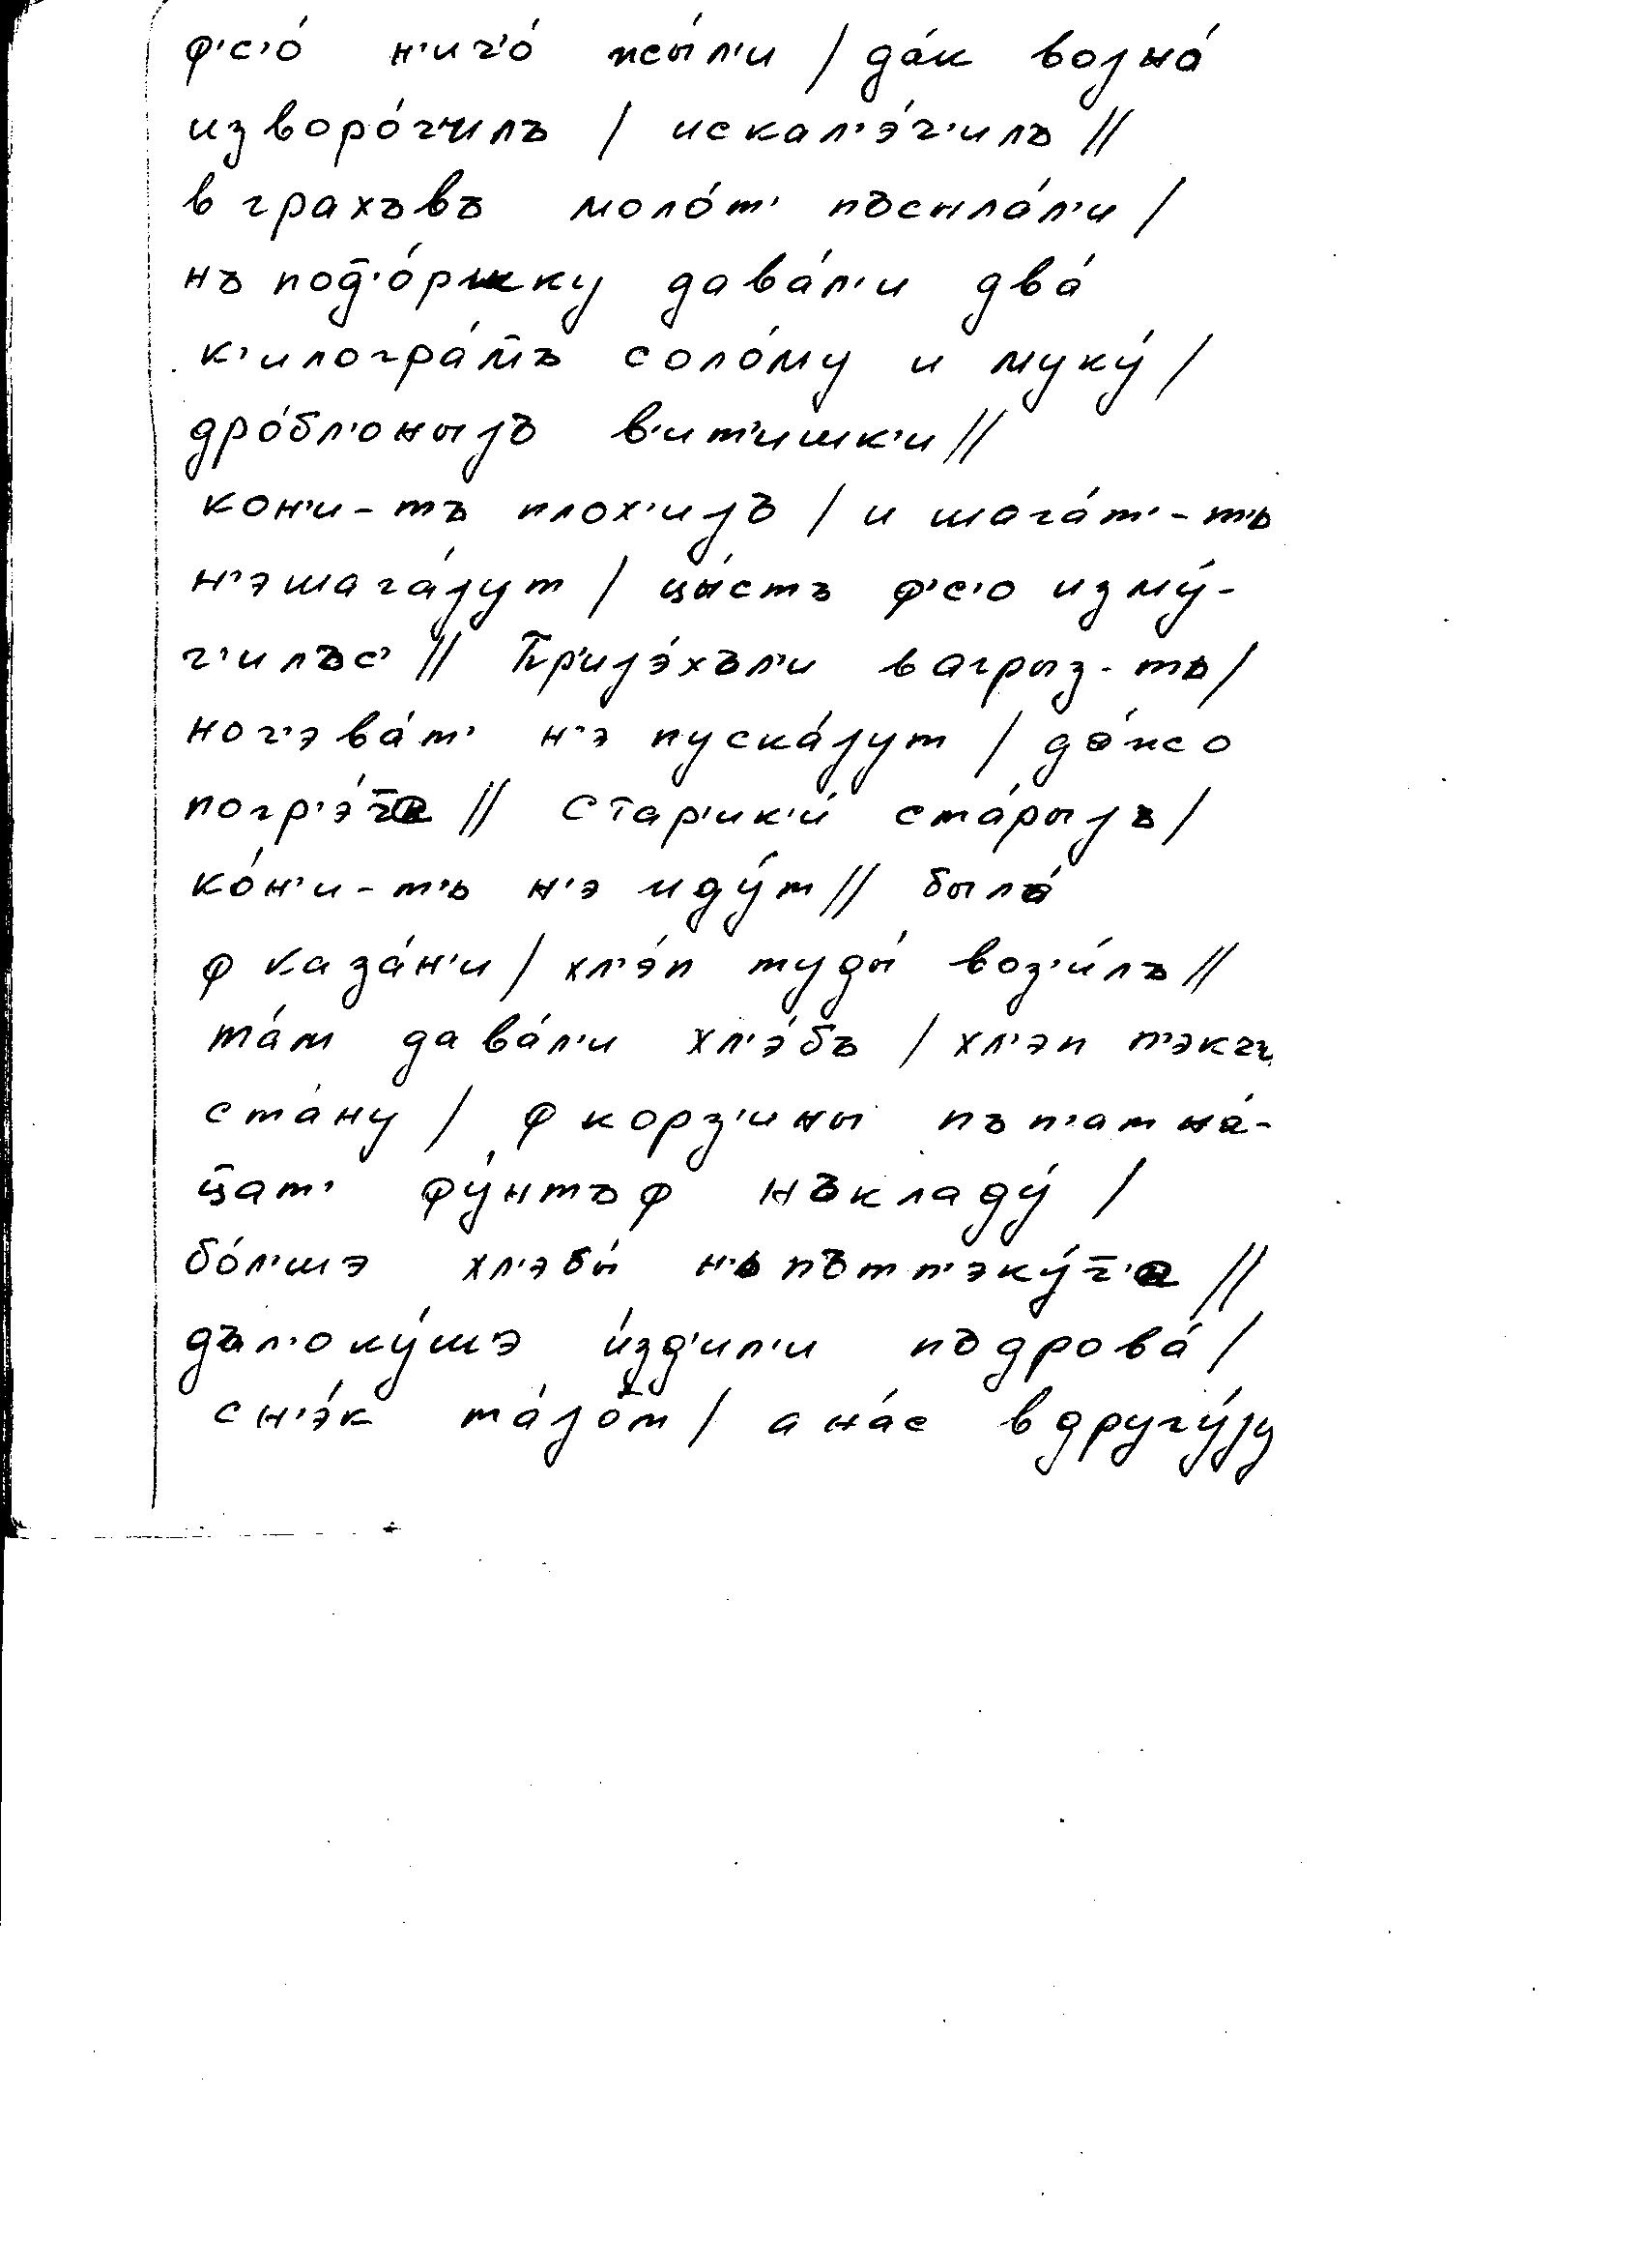 ф'с'о́ н'ич'о́ жы́л'и / да́к војна́
изворо́ч'илъ / искал'э́ч'илъ //
в грахъвъ моло́т' пъсыла́л'и /
нъ под̄'о́ржку дава́л'и два́
к'илогра́м̄ъ соло́му и муку́ /
дро́бл'оныјъ в'ит'ишк'и //
кон'и-тъ плох'ијъ / и шага́т'-т'ь
н'эшага́јут / цы́стъ ф'с'о изму́-
ч'илъс' // Пр'ијэ́хъл'и вагрыз-тъ /
ноч'эва́т' н'э пуска́јут / да́жо
погр'э́ц̄а // Стар'ик'и́ ста́рыјъ /
ко́н'и-т'ь н'э иду́т // была́
ф каза́н'и / хл'э́п туды́ воз'и́лъ //
та́м дава́л'и хл'э́бъ / хл'эп п'экч'и
ста́ну / ф корз'ины пъп'атна́-
ц̄ат' фу́нтъф нъкладу́ /
бо́л'шэ хл'эбы́ н'ьпътп'эку́ц̄а //
дъл'оку́шэ и́зд'ил'и пъдрова́ /
сн'э́к та́јо̂м / а на́с в другу́ју